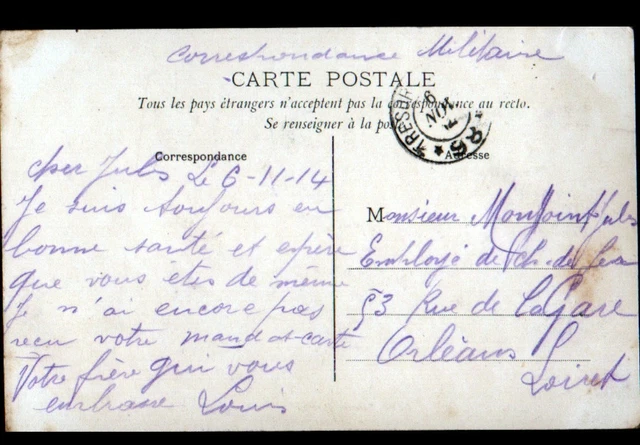 Correspondance Militaire
CARTE POSTALE
Tous les pays étrangers n'acceptent pas la correspondance au recto.
Se renseigner à la poste
TRESOR
6
NOV
Correspondance
Adresse
Cher Jules Le 6-11-14
Je suis toujours en
bonne santé et espère
que vous êtes de même
Je n'ai encore pas
recu votre mandat-carte
Votre frère qui vous
embrasse Louis
Monsieur Jules
Employé de ch. de fer
53 Rue de la Gare
Orléans
Loiret